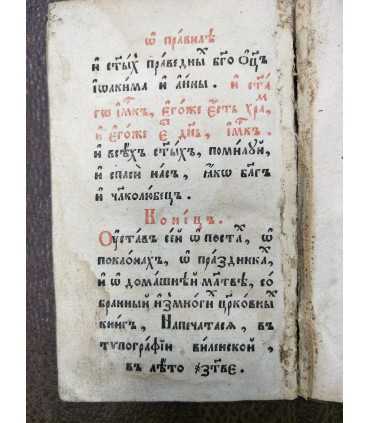 Ѿ правилѣ
и҆ ст҃ы́хъ пра́ведныⷯ бг҃оѻ҆ц҃ъ
і҆ѡаки́ма и҆ а҆́нны. и҆ ст҃а́
гѡ и҆́мⷬ҇къ, є҆гѡ́же є҆́сть хра́ⷨ,
и҆ є҆гѡ́же є҆́ дн҃ь, и҆́мⷬ҇къ.
и҆ всѣ́хъ ст҃ы́хъ, поми́лꙋй,
и҆ сп҃сѝ на́съ, ꙗ҆́кѡ бл҃гъ
и҆ чл҃колю́бецъ.
Коне́цъ.
Оу҆ста́въ се́й ѡ҆ посте́ⷯ, ѡ҆
покло́нахъ, ѡ҆ пра́здникаⷯ,
и҆ ѡ҆ дома́шнѣй мл҃твѣ, со́
бранный и҆з̾мно́ги црⷪ҇ко́вныⷯ
кни́гъ, Напеча́тасѧ, въ
тѵпогра́фїи ви́ленской,
въ лѣ́то ҂зт҃ве.